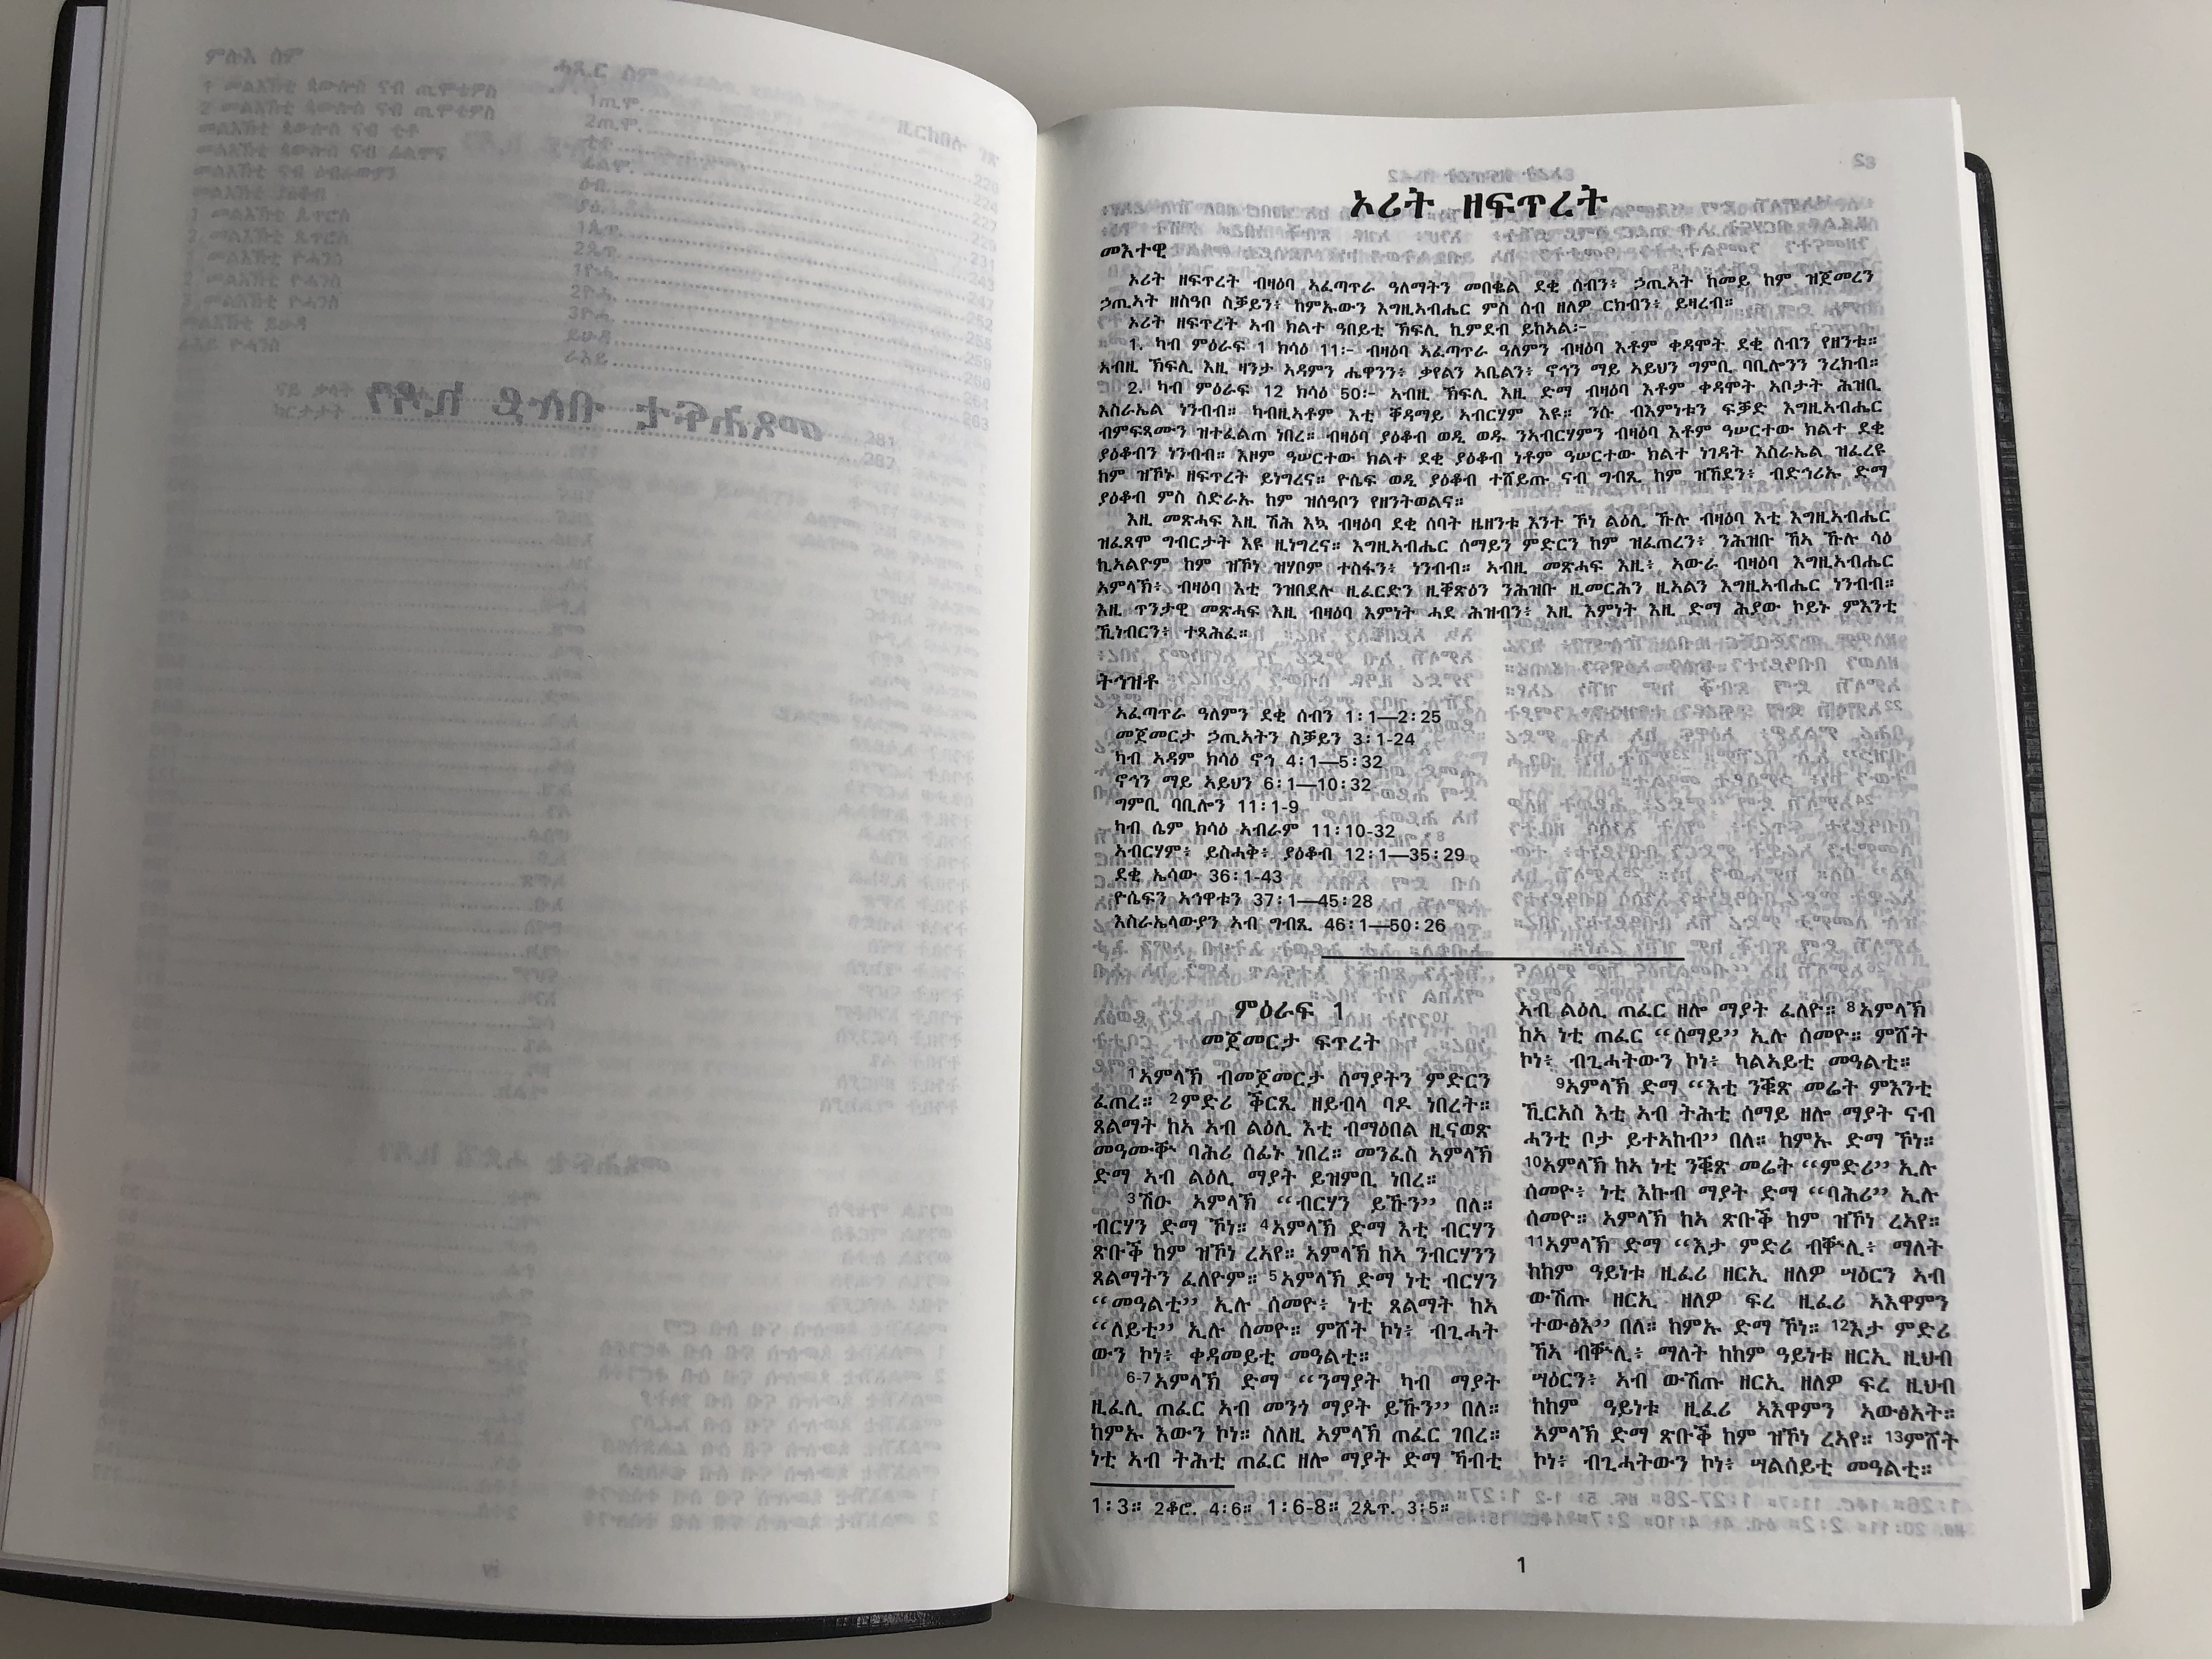 ኦሪት ዘፍጥረት
መእተዊ
ኦሪት ዘፍጥረት ብዛዕባ ኣፈጣጥራ ዓለማትን መበቈል ደቂ ሰብን፥ ኃጢኣት ከመይ ከም ዝጀመረን
ኃጢኣት ዘስዓቦ ስቓይን፥ ከምኡውን እግዚኣብሔር ምስ ሰብ ዘለዎ ርክብን፥ ይዛረብ።
ኦሪት ዘፍጥረት ኣብ ክልተ ዓበይቲ ኽፍሊ ኪምደብ ይከኣል፦
1. ካብ ምዕራፍ 1 ክሳዕ 11፦ ብዛዕባ ኣፈጣጥራ ዓለምን ብዛዕባ እቶም ቀዳሞት ደቂ ሰብን የዘንቱ።
ኣብዚ ኽፍሊ እዚ ዛንታ ኣዳምን ሔዋንን፥ ቃየልን ኣቤልን፥ ኖኅን ማይ ኣይህን ግምቢ ባቢሎንን ንረክብ።
2. ካብ ምዕራፍ 12 ክሳዕ 50፦ ኣብዚ ኽፍሊ እዚ ድማ ብዛዕባ እቶም ቀዳሞት ኣቦታት ሕዝቢ
እስራኤል ነንብብ። ካብዚኣቶም እቲ ቐዳማይ ኣብርሃም እዩ። ንሱ ብእምነቱን ፍቓድ እግዚኣብሔር
ብምፍጻሙን ዝተፈልጠ ነበረ። ብዛዕባ ያዕቆብ ወዲ ወዱ ንኣብርሃምን ብዛዕባ እቶም ዓሠርተው ክልተ ደቂ
ያዕቆብን ነንብብ። እዞም ዓሠርተው ክልተ ደቂ ያዕቆብ ነቶም ዓሠርተው ክልተ ነገዳት እስራኤል ዝፈረዩ
ከም ዝኾኑ ዘፍጥረት ይነግረና። ዮሴፍ ወዲ ያዕቆብ ተሸይጡ ናብ ግብጺ ከም ዝኸደን፥ ብድኅሪኡ ድማ
ያዕቆብ ምስ ስድራኡ ከም ዝሰዓቦን የዘንትወልና።
እዚ መጽሓፍ እዚ ሽሕ እኳ ብዛዕባ ደቂ ሰባት ዜዘንቱ እንተ ኾነ ልዕሊ ኹሉ ብዛዕባ እቲ እግዚኣብሔር
ዝፈጸሞ ግብርታት እዩ ዚነግረና። እግዚኣብሔር ሰማይን ምድርን ከም ዝፈጠረን፥ ንሕዝቡ ኸኣ ኹሉ ሳዕ
ኪኣልዮም ከም ዝኾነ ዝሃቦም ተስፋን፥ ነንብብ። ኣብዚ መጽሓፍ እዚ፥ ኣውራ ብዛዕባ እግዚኣብሔር
ኣምላኽ፥ ብዛዕባ እቲ ንዝበደሉ ዚፈርድን ዚቐጽዕን ንሕዝቡ ዚመርሕን ዚኣልን እግዚኣብሔር ነንብብ።
እዚ ጥንታዊ መጽሓፍ እዚ ብዛዕባ እምነት ሓደ ሕዝብን፥ እዚ እምነት እዚ ድማ ሕያው ኮይኑ ምእንቲ
ኺነብርን፥ ተጻሕፈ።
ትኅዝቶ
ኣፈጣጥራ ዓለምን ደቂ ሰብን 1፡1—2፡25
መጀመርታ ኃጢኣትን ስቓይን 3፡1-24
ካብ ኣዳም ክሳዕ ኖኅ 4፡1—5፡32
ኖኅን ማይ ኣይህን 6፡1—10፡32
ግምቢ ባቢሎን 11፡1-9
ካብ ሴም ክሳዕ ኣብራም 11፡10-32
ኣብርሃም፥ ይስሓቅ፥ ያዕቆብ 12፡1—35፡29
ደቂ ኤሳው 36፡1-43
ዮሴፍን ኣኅዋቱን 37፡1—45፡28
እስራኤላውያን ኣብ ግብጺ 46፡1—50፡26
ምዕራፍ 1
መጀመርታ ፍጥረት
1ኣምላኽ ብመጀመርታ ሰማያትን ምድርን
ፈጠረ። 2ምድሪ ቅርጺ ዘይብላ ባዶ ነበረት።
ጸልማት ከኣ ኣብ ልዕሊ እቲ ብማዕበል ዚናወጽ
መዓሙቝ ባሕሪ ሰፊኑ ነበረ። መንፈስ ኣምላኽ
ድማ ኣብ ልዕሊ ማያት ይዝምቢ ነበረ።
3ሽዑ ኣምላኽ “ብርሃን ይኹን” በለ።
ብርሃን ድማ ኾነ። 4ኣምላኽ ድማ እቲ ብርሃን
ጽቡቕ ከም ዝኾነ ረኣየ። ኣምላኽ ከኣ ንብርሃንን
ጸልማትን ፈለዮም። 5ኣምላኽ ድማ ነቲ ብርሃን
“መዓልቲ” ኢሉ ሰመዮ፥ ነቲ ጸልማት ከኣ
“ለይቲ” ኢሉ ሰመዮ። ምሸት ኮነ፥ ብጊሓት
ውን ኮነ፥ ቀዳመይቲ መዓልቲ።
6-7ኣምላኽ ድማ “ንማያት ካብ ማያት
ዚፈሊ ጠፈር ኣብ መንጎ ማያት ይኹን” በለ።
ከምኡ እውን ኮነ። ስለዚ ኣምላኽ ጠፈር ገበረ።
ነቲ ኣብ ትሕቲ ጠፈር ዘሎ ማያት ድማ ኻብቲ
ኣብ ልዕሊ ጠፈር ዘሎ ማያት ፈለዮ። 8ኣምላኽ
ከኣ ነቲ ጠፈር “ሰማይ” ኢሉ ሰመዮ። ምሸት
ኮነ፥ ብጊሓትውን ኮነ፥ ካልኣይቲ መዓልቲ።
9ኣምላኽ ድማ “እቲ ንቑጽ መሬት ምእንቲ
ኺርአስ እቲ ኣብ ትሕቲ ሰማይ ዘሎ ማያት ናብ
ሓንቲ ቦታ ይተኣከብ” በለ። ከምኡ ድማ ኾነ።
10ኣምላኽ ከኣ ነቲ ንቑጽ መሬት “ምድሪ” ኢሉ
ሰመዮ፥ ነቲ እኩብ ማያት ድማ “ባሕሪ” ኢሉ
ሰመዮ። ኣምላኽ ከኣ ጽቡቕ ከም ዝኾነ ረኣየ።
11ኣምላኽ ድማ “እታ ምድሪ ብቚሊ፥ ማለት
ከከም ዓይነቱ ዚፈሪ ዘርኢ ዘለዎ ሣዕርን ኣብ
ውሽጡ ዘርኢ ዘለዎ ፍረ ዚፈሪ ኣእዋምን
ተውፅእ” በለ። ከምኡ ድማ ኾነ። 12እታ ምድሪ
ኸኣ ብቚሊ፥ ማለት ከከም ዓይነቱ ዘርኢ ዚህብ
ሣዕርን፥ ኣብ ውሽጡ ዘርኢ ዘለዎ ፍረ ዚህብ
ከከም ዓይነቱ ዚፈሪ ኣእዋምን ኣውፅአት።
ኣምላኽ ድማ ጽቡቕ ከም ዝኾነ ረኣየ። 13ምሸት
ኮነ፥ ብጊሓትውን ኮነ፥ ሣልሰይቲ መዓልቲ።
1፡3። 2ቆሮ. 4፡6። 1፡6-8። 2ጴጥ. 3፡5።
1